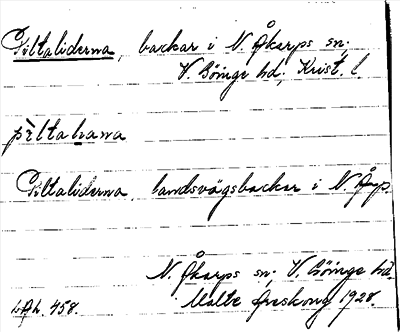 Piltaliderna, backar i N. Åkarps sn;
V. Göinge hd; Krist. l.
Piltaliderna, landsvägsbackar i N. Åkarp.
N. Åkarps sn; V. Göinge hd
Malte Areskoug 1928.
LAL. 458.